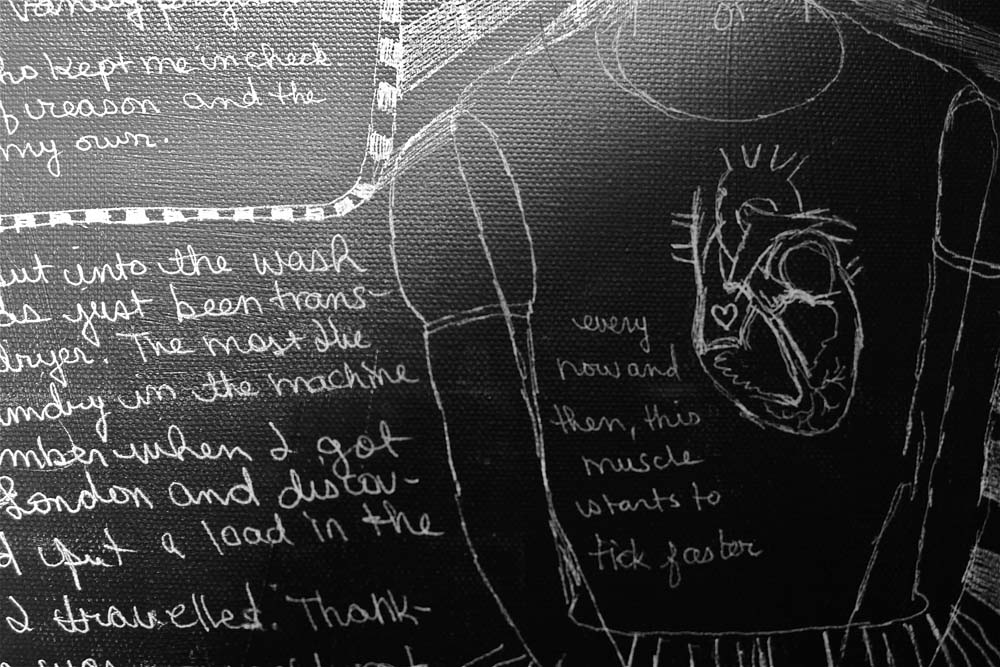 vanity
ho kept me in check
f reason and the
my own.
ut into the wash
as just been trans-
dryer. The most the
undry in the machine
mber when I got
London and discov-
d put a load in the
I travelled. Thank-
or
every
now and
then, this
muscle
starts to
tick faster